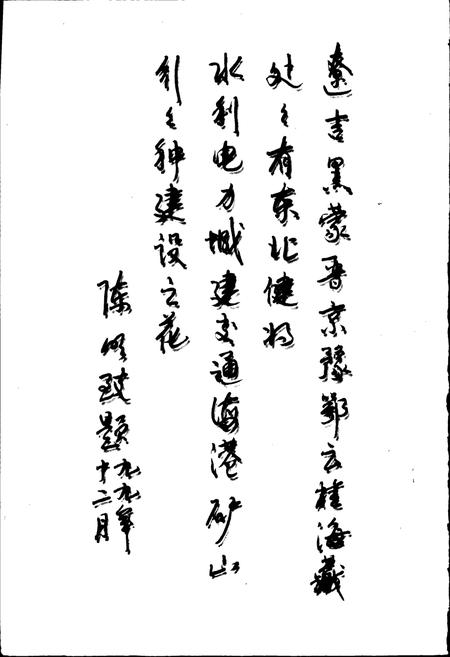 遼吉黑蒙晋京豫鄂云桂海藏
处々有东北健将
水利电力城建交通海港矿山
种建设之花
陈明致题
九九年
十二月